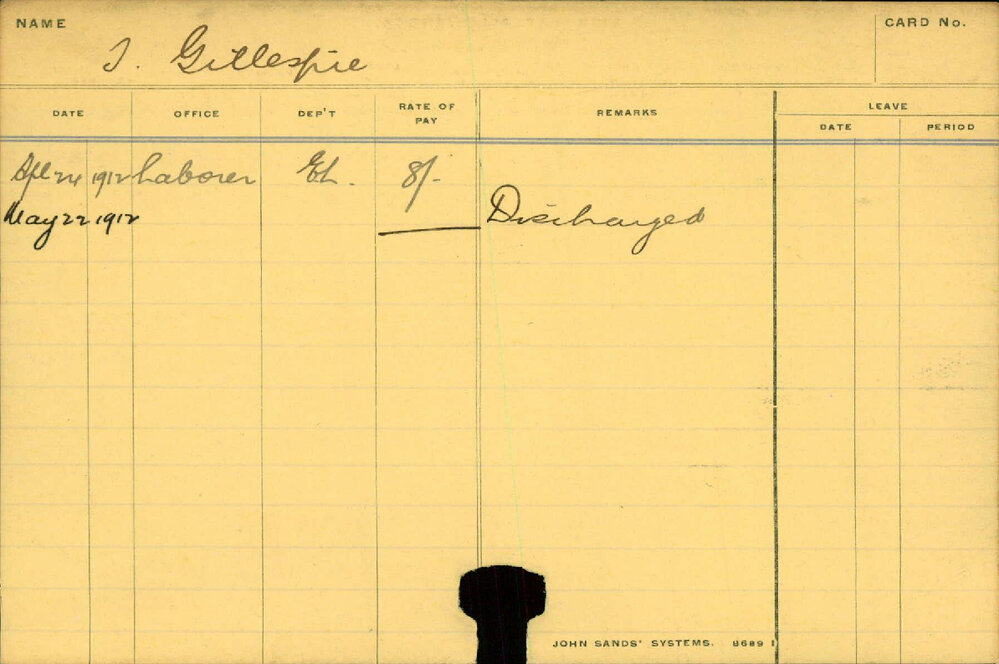 NAME
CARD No.
J. Gillespie
DATE OFFICE DEP'T RATE OF PAY REMARKS LEAVE
DATE PERIOD
Apl 24 1912 Laborer EL. 8/-
May 22 1912 Discharged
JOHN SANDS' SYSTEMS. 8689 1